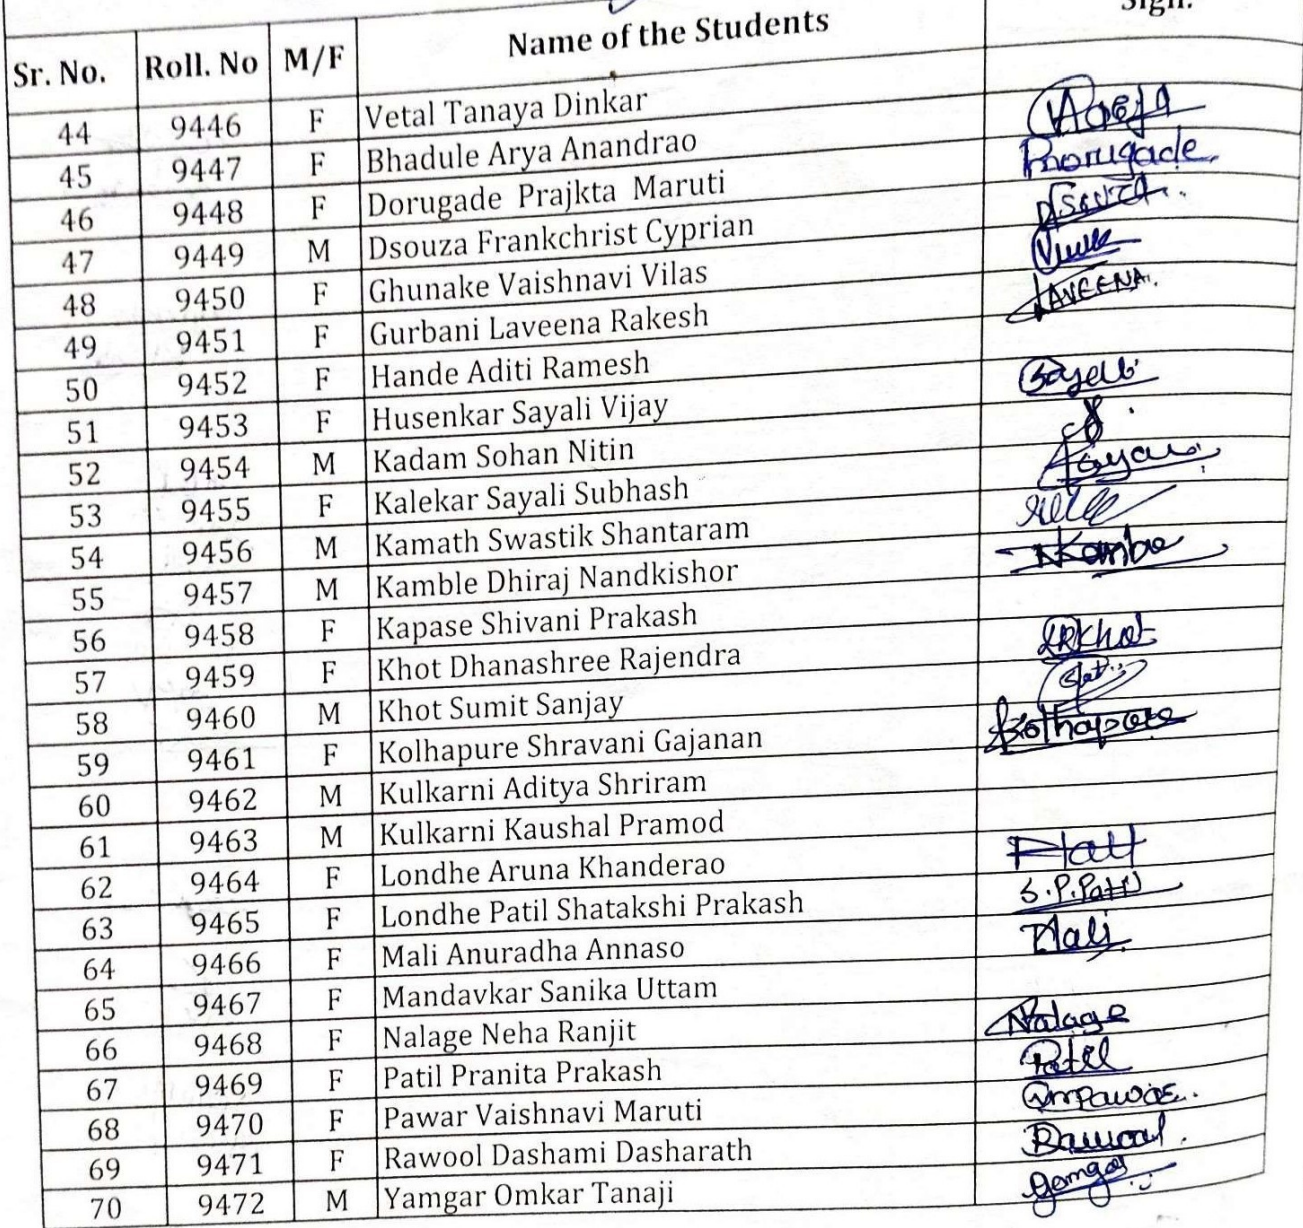 Sign.
Sr. No. Roll. No M/F Name of the Students
44 9446 F Vetal Tanaya Dinkar
45 9447 F Bhadule Arya Anandrao
46 9448 F Dorugade Prajkta Maruti Dorugade
47 9449 M Dsouza Frankchrist Cyprian
48 9450 F Ghunake Vaishnavi Vilas
49 9451 F Gurbani Laveena Rakesh LAVEENA.
50 9452 F Hande Aditi Ramesh
51 9453 F Husenkar Sayali Vijay
52 9454 M Kadam Sohan Nitin
53 9455 F Kalekar Sayali Subhash
54 9456 M Kamath Swastik Shantaram
55 9457 M Kamble Dhiraj Nandkishor
56 9458 F Kapase Shivani Prakash
57 9459 F Khot Dhanashree Rajendra DRKhot
58 9460 M Khot Sumit Sanjay
59 9461 F Kolhapure Shravani Gajanan Kolhapure
60 9462 M Kulkarni Aditya Shriram
61 9463 M Kulkarni Kaushal Pramod
62 9464 F Londhe Aruna Khanderao
63 9465 F Londhe Patil Shatakshi Prakash S.P.Patil
64 9466 F Mali Anuradha Annaso Mali
65 9467 F Mandavkar Sanika Uttam
66 9468 F Nalage Neha Ranjit Nalage
67 9469 F Patil Pranita Prakash Patil
68 9470 F Pawar Vaishnavi Maruti
69 9471 F Rawool Dashami Dasharath Rawool.
70 9472 M Yamgar Omkar Tanaji